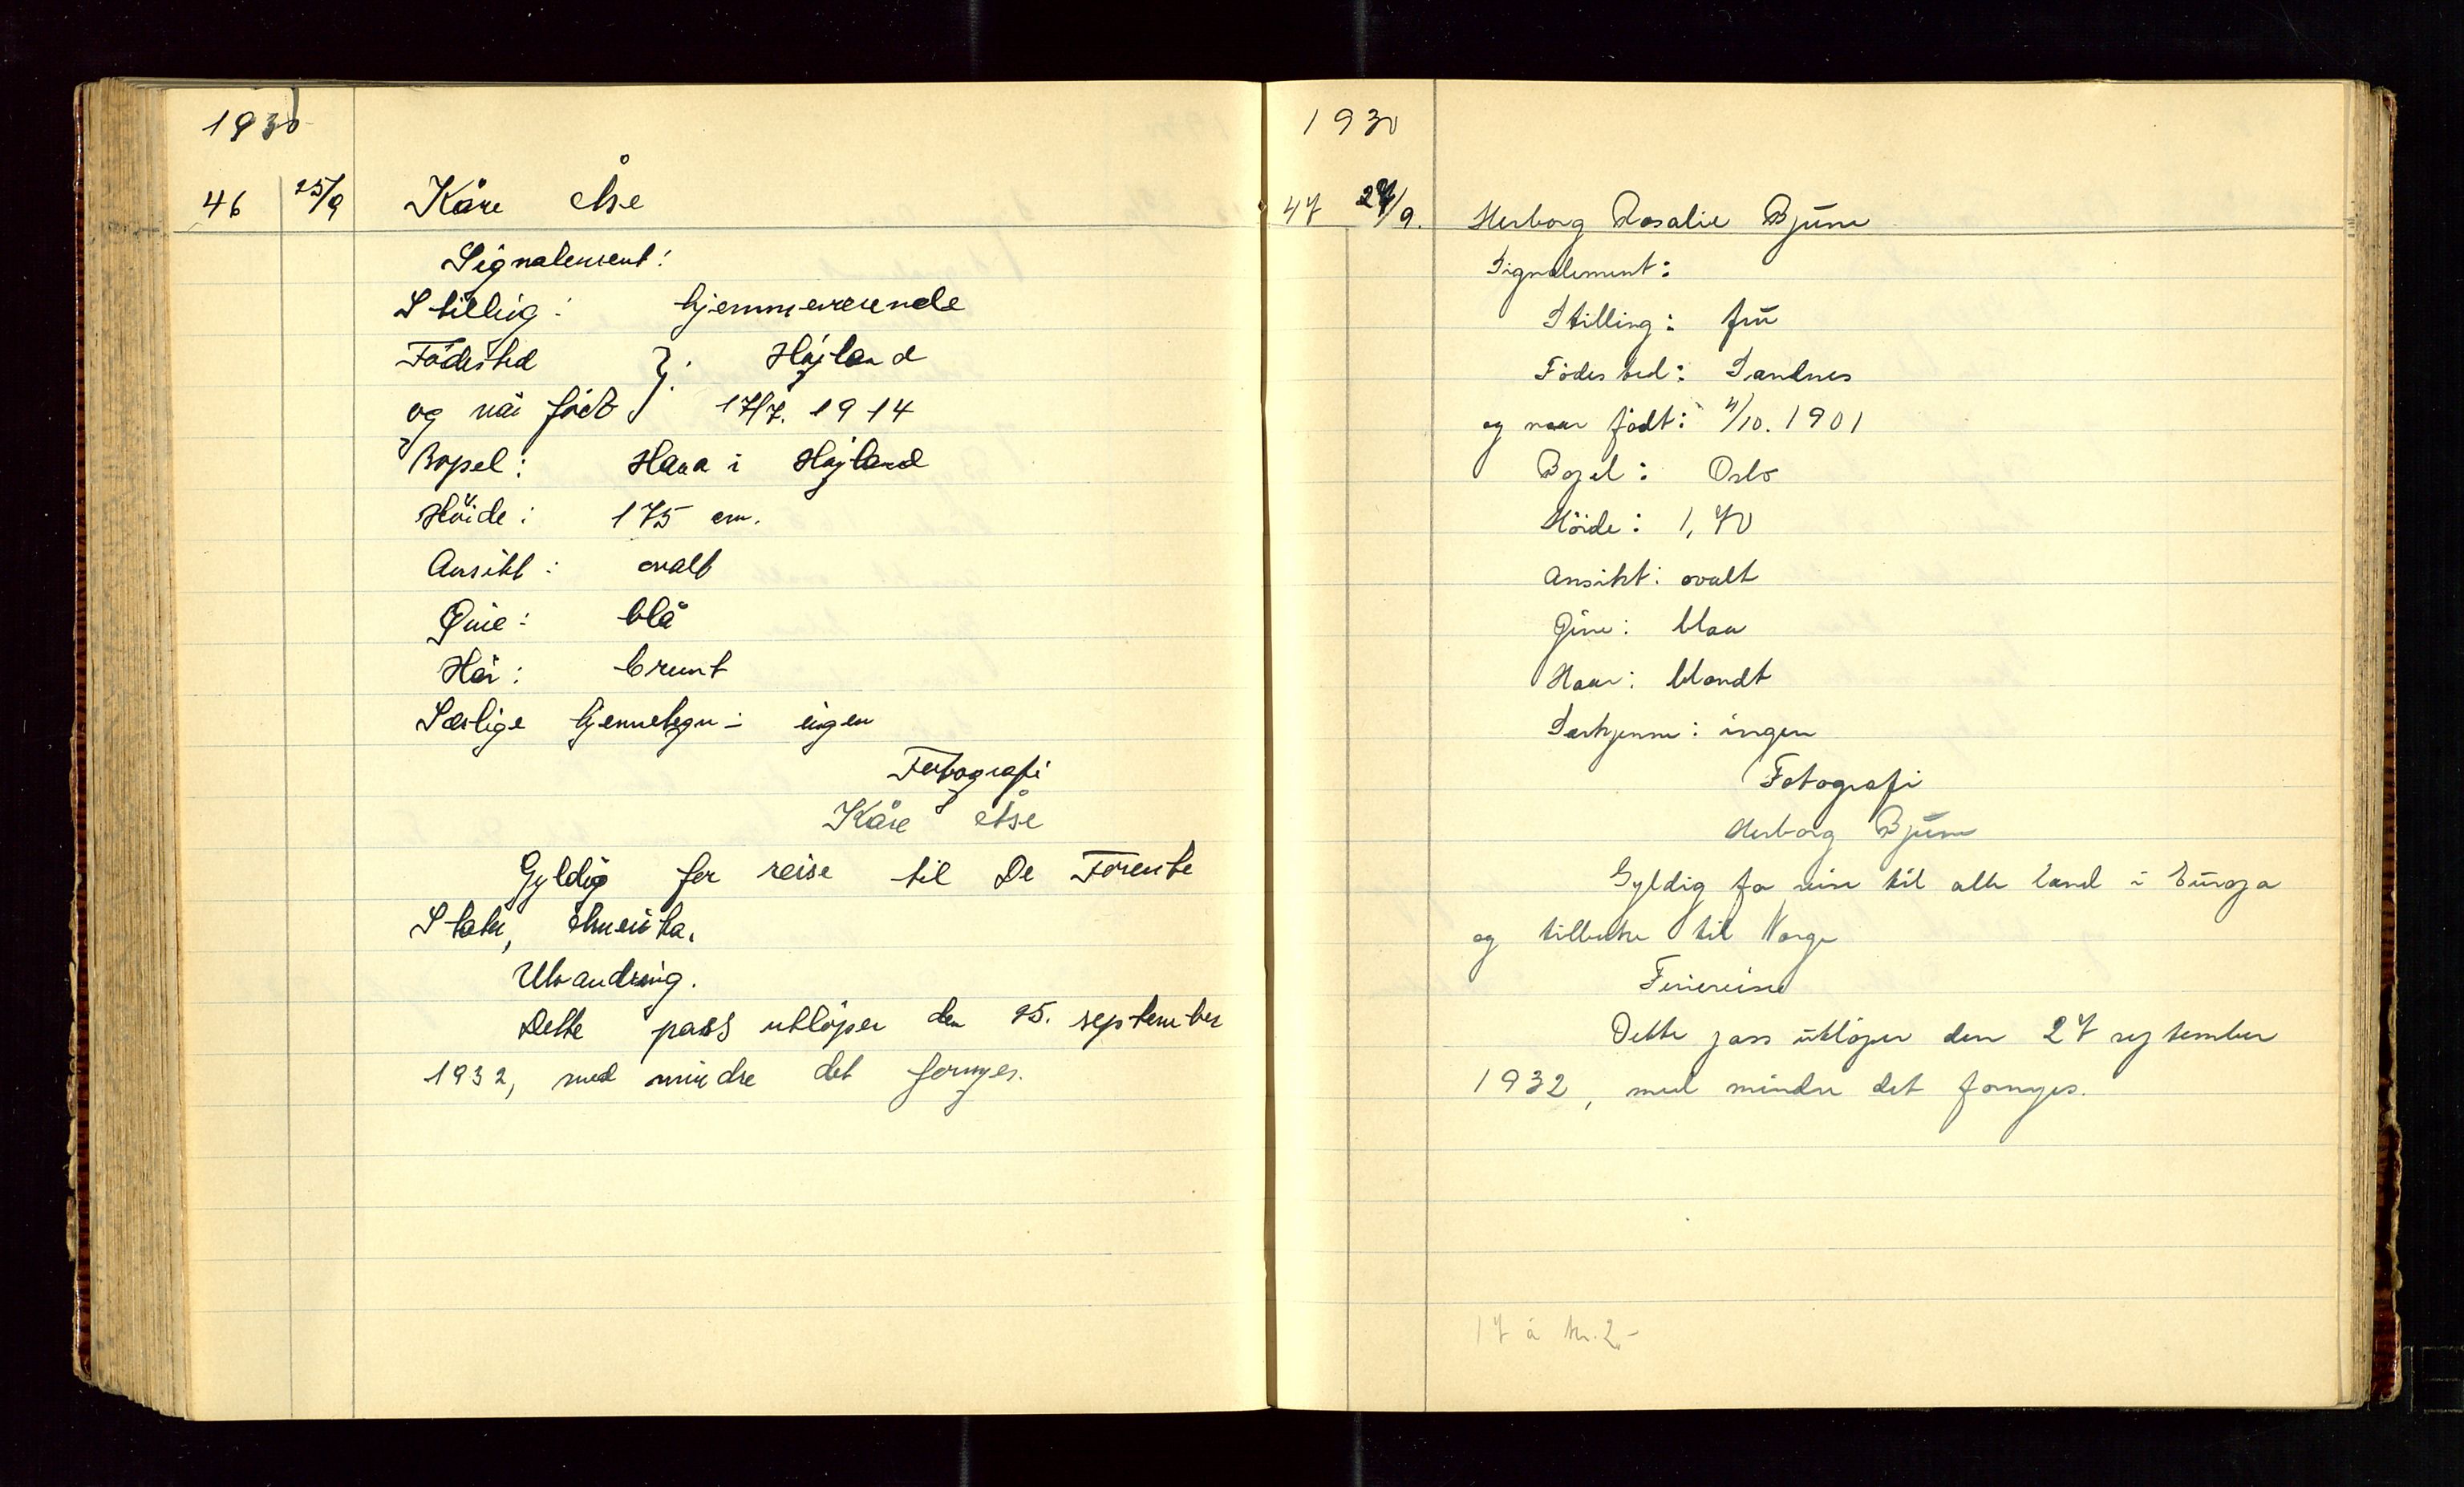 1930
46 25/9 Kåre Åse
Signalement:
Stilling: hjemmeværende
Födested }: Höjland
og når födt } 17/7. 1914
Bopel: Hana i Höjland
Höide: 175 cm.
Ansikt: ovalt
Øine: blå
Hår: brunt
Særlige kjennetegn: ingen
Fotografi
Kåre Åse
Gyldig for reise til De Forente
Stater, Amerika.
Utvandring.
Dette pass utlöper den 25. september
1932, med mindre det fornyes.
1930
47 27/9. Herborg Rosalie Bjune
Signalement:
Stilling: fru
Födested: Sandnes
og naar födt: 4/10. 1901
Bopel: Oslo
Höide: 1,70
Ansikt: ovalt
Öine: blaa
Haar: blondt
Særkjenne: ingen
Fotografi
Herborg Bjune
Gyldig for reise til alle land i Europa
og tilbake til Norge
Feriereise
Dette pass utlöper den 27 september
1932, med mindre det fornyes.
17 á kr. 2,-